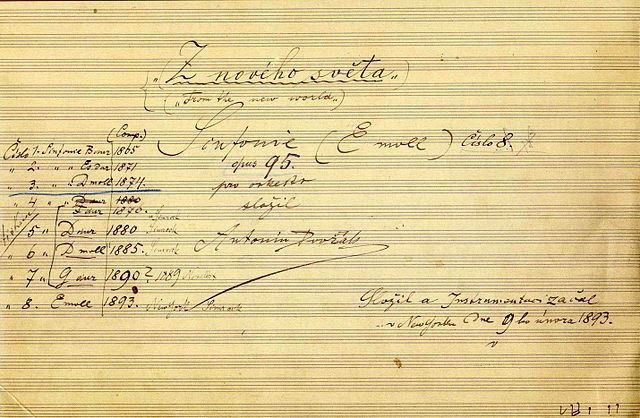 „Z nového světa"
(„From the new world„)
Sinfonie (E moll) Číslo 8.
opus 95.
pro orkestr
složil
Antonín Dvořák
Složil a Instrumentaci začal
v New Yorku dne 9ho února 1893.
(Comp.)
Číslo 1. Sinfonie B dur 1865
„ 2. „ Es dur 1871
„ 3. „ D moll 1874.
„ 4 „ D dur 1880
F dur 1876. Simrock
5 „ D dur 1880 Simrock
„ 6 „ D moll 1885. Simrock
„ 7 „ G dur 1890? 1889 Novello
„ 8. E moll 1893. New York Simrock